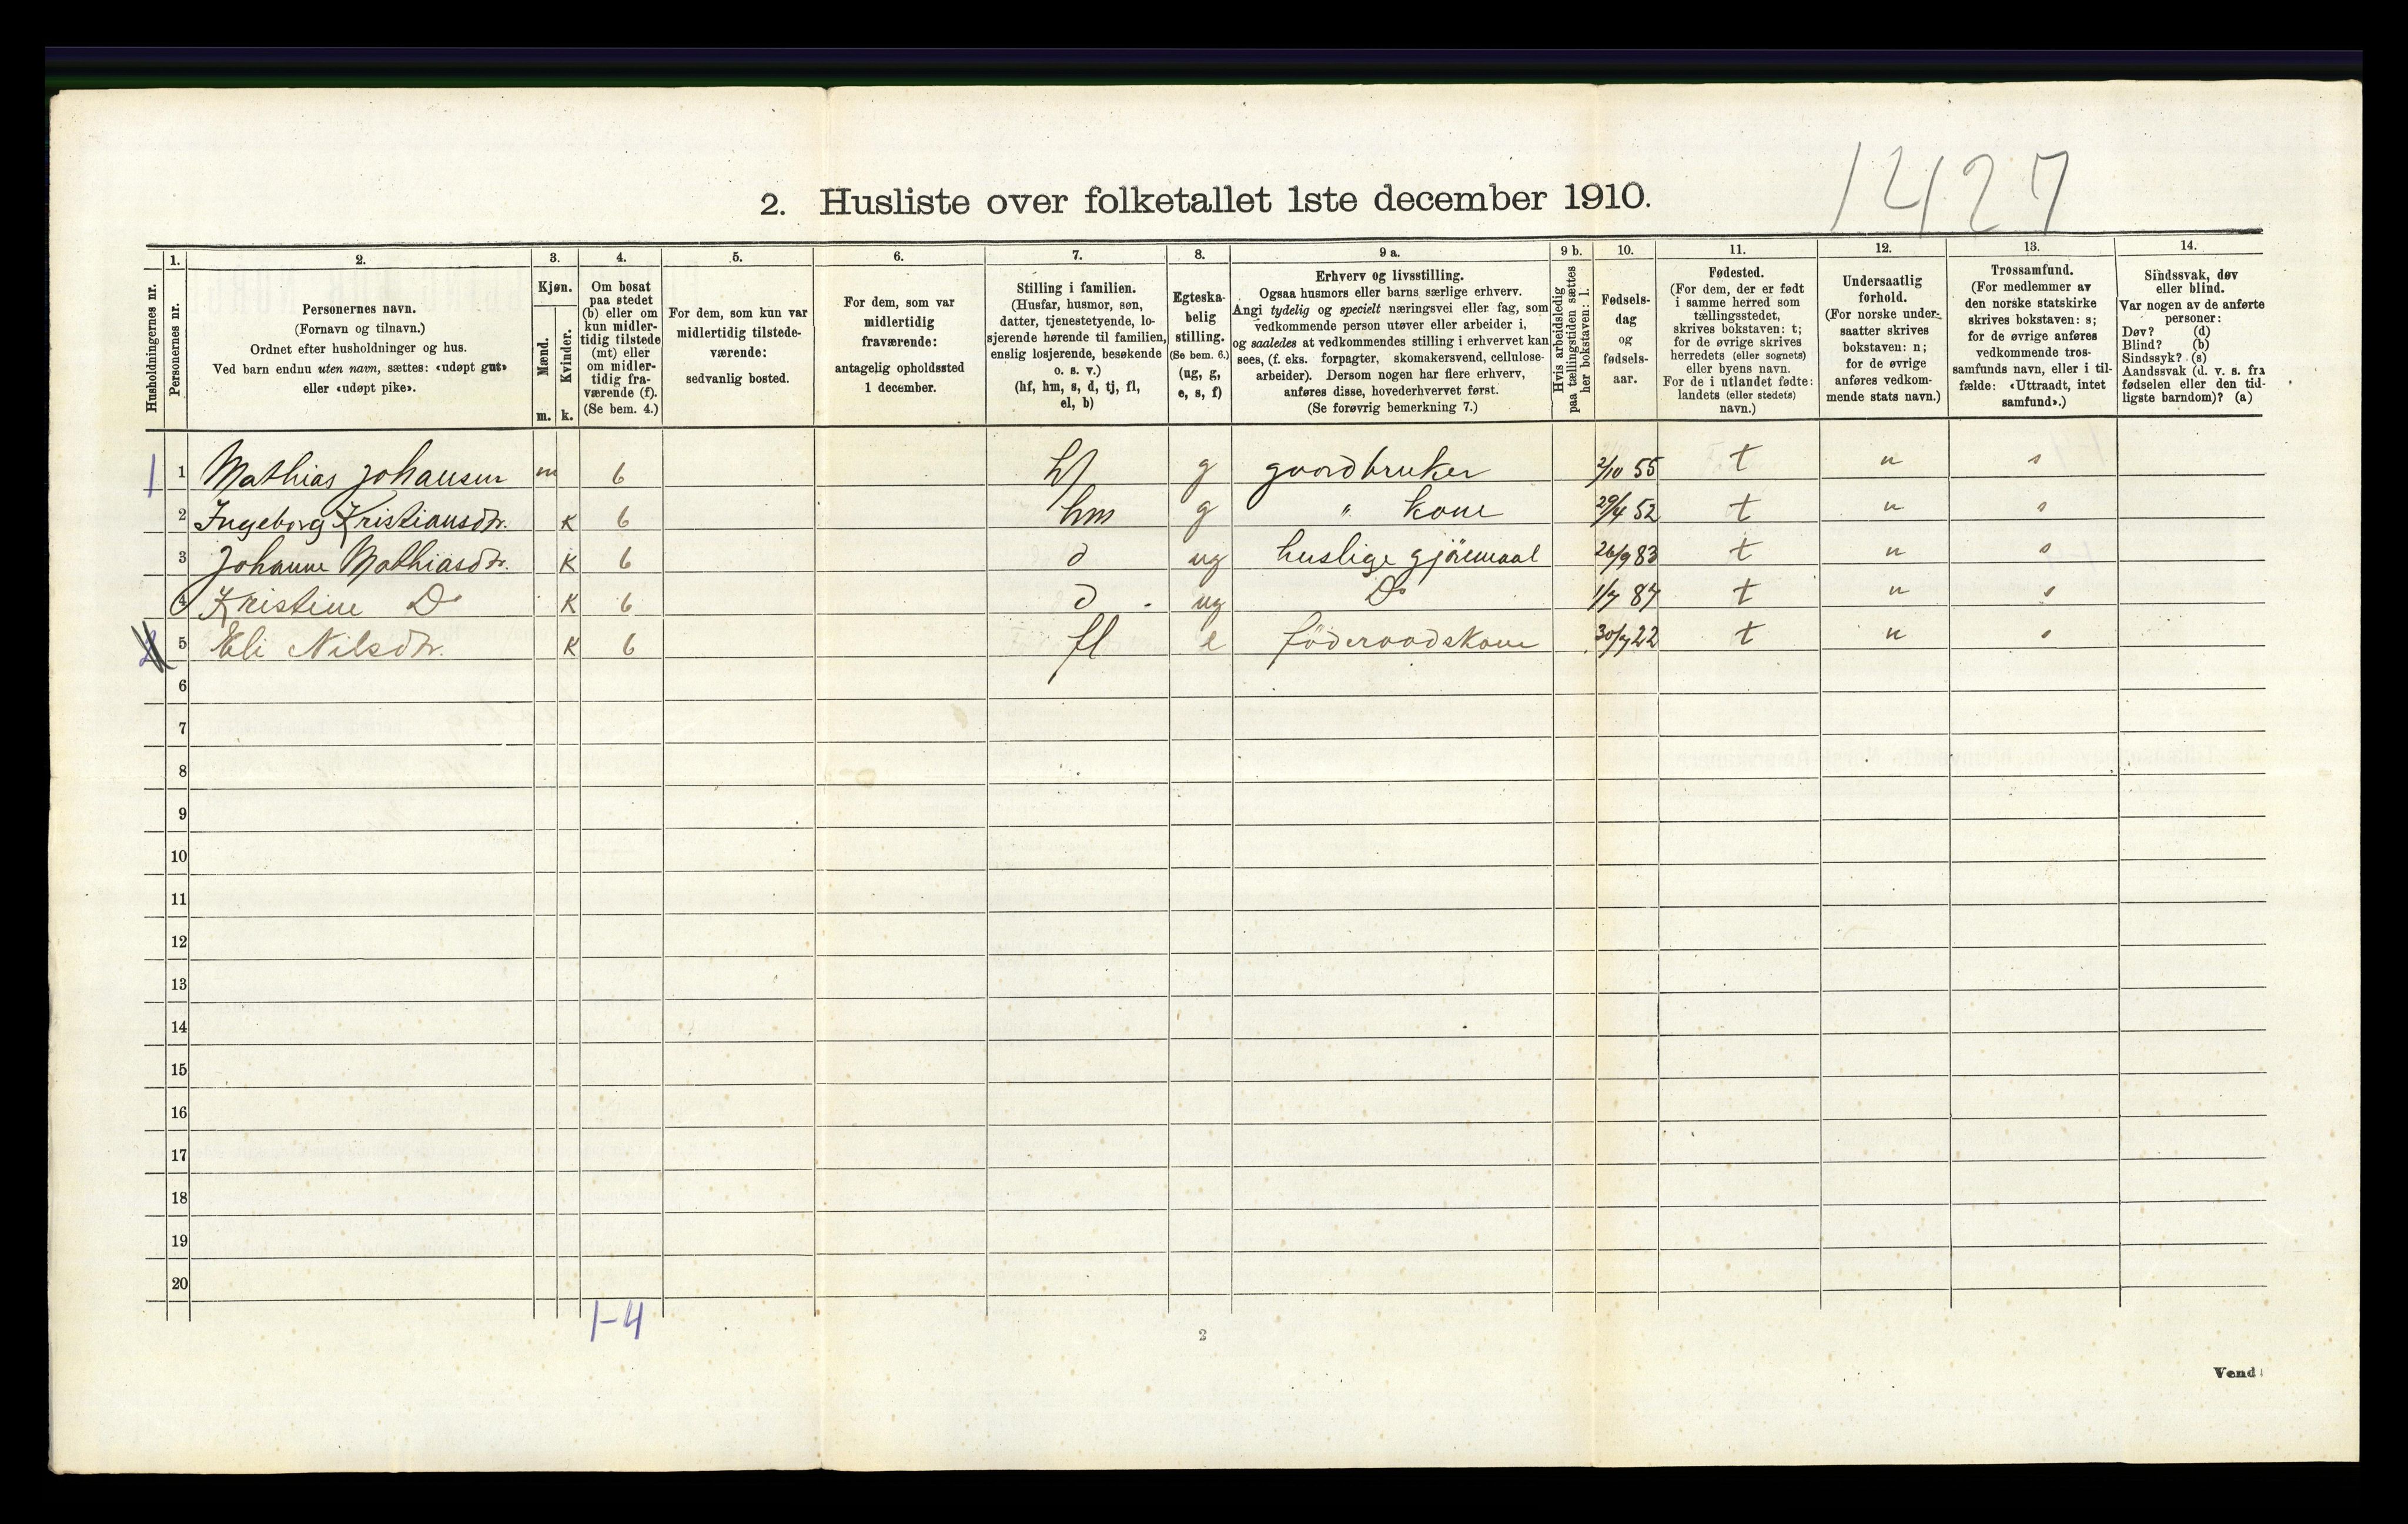 1427
2. Husliste over folketallet 1ste december 1910.
Husholdningernes nr.
1.
Personernes nr.
2.
Personernes navn.
(Fornavn og tilnavn.)
Ordnet efter husholdninger og hus.
Ved barn endnu uten navn, sættes: «udøpt gut»
eller «udøpt pike».
3.
Kjøn.
Mænd.
m.
Kvinder.
k.
4.
Om bosat
paa stedet
(b) eller om
kun midler-
tidig tilstede
(mt) eller
om midler-
tidig fra-
værende (f).
(Se bem. 4.)
5.
For dem, som kun var
midlertidig tilstede-
værende:
sedvanlig bosted.
6.
For dem, som var
midlertidig
fraværende:
antagelig opholdssted
1 december.
7.
Stilling i familien.
(Husfar, husmor, søn,
datter, tjenestetyende, lo-
sjerende hørende til familien,
enslig losjerende, besøkende
o. s. v.)
(hf, hm, s, d, tj, fl,
el, b)
8.
Egteska-
belig
stilling.
(Se bem. 6.)
(ug, g,
e, s, f)
9 a.
Erhverv og livsstilling.
Ogsaa husmors eller barns særlige erhverv.
Angi tydelig og specielt næringsvei eller fag, som
vedkommende person utøver eller arbeider i,
og saaledes at vedkommendes stilling i erhvervet kan
sees, (f. eks. forpagter, skomakersvend, cellulose-
arbeider). Dersom nogen har flere erhverv,
anføres disse, hovederhvervet først.
(Se forøvrig bemerkning 7.)
9 b.
Hvis arbeidsledig
paa tællingstiden sættes
her bokstaven: l.
10.
Fødsels-
dag
og
fødsels-
aar.
11.
Fødested.
(For dem, der er født
i samme herred som
tællingsstedet,
skrives bokstaven: t;
for de øvrige skrives
herredets (eller sognets)
eller byens navn.
For de i utlandet fødte:
landets (eller stedets)
navn.)
12.
Undersaatlig
forhold.
(For norske under-
saatter skrives
bokstaven: n;
for de øvrige
anføres vedkom-
mende stats navn.)
13.
Trossamfund.
(For medlemmer av
den norske statskirke
skrives bokstaven: s;
for de øvrige anføres
vedkommende tros-
samfunds navn, eller i til-
fælde: «Uttraadt, intet
samfund».)
14.
Sindssvak, døv
eller blind.
Var nogen av de anførte
personer:
Døv? (d)
Blind? (b)
Sindssyk? (s)
Aandssvak (d. v. s. fra
fødselen eller den tid-
ligste barndom)? (a)
1 1 Mathias Johansen m 6 hf g gaardbruker 2/10 55 t n s
2 Ingeborg Kristiansdtr. k 6 hm g " kone 29/4 52 t n s
3 Johanne Mathiasdtr. k 6 d ug huslige gjöremaal 26/9 83 t n s
4 Kristine Do k 6 d ug Do 1/7 87 t n s
5 Eli Nilsdtr. k 6 fl e föderaadskone 30/7 22 t n s
6
7
8
9
10
11
12
13
14
15
16
17
18
19
20
1-4
2
Vend